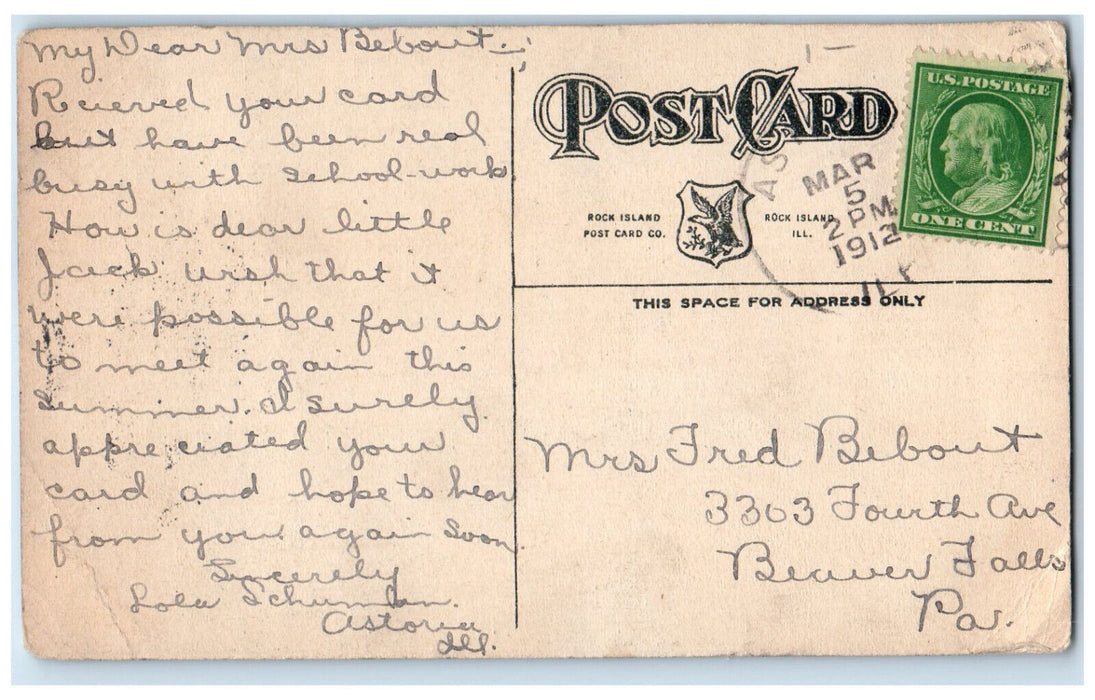 My Dear Mrs Bebout:-
Recieved your card
but have been real
busy with school-work
How is dear little
Jack. wish that it
were possible for us
to meet again this
summer. I surely
appreciated your
card and hope to hear
from you again soon.
Sincerely
Lola Schuman.
Astoria
Ill.
POST CARD
ROCK ISLAND
POST CARD CO.
ROCK ISLAND,
ILL.
MAR
5
2 PM
1912
ILL
U.S. POSTAGE
ONE CENT
THIS SPACE FOR ADDRESS ONLY
Mrs Fred Bebout
3303 Fourth Ave
Beaver Falls
Pa.